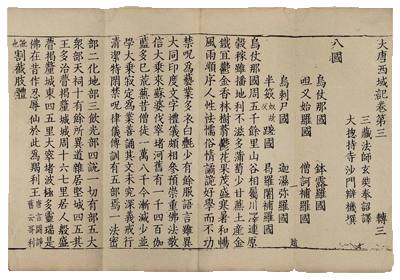 大唐西域記卷第三 轉三
三藏法師玄奘奉詔譯
大捴持寺沙門辯機撰
八國
烏仗那國 鉢露羅國
呾叉始羅國 僧訶補羅國
烏剌尸國 迦濕弥羅國
半笯奴故反蹉國 曷羅闍補羅國
烏仗那國周五千餘里山谷相屬川澤連原
穀稼雖播地利不滋多蒲萄少甘蔗土產金
鐵宜鬱金香林樹蓊鬱花果茂盛寒暑和暢
風雨順序人性怯懦俗情譎詭好學而不功
禁呪為藝業多衣白㲲少有餘服語言雖異
大同印度文字禮儀頗相參預崇重佛法敬
信大乘夾蘇婆伐窣堵河舊有一千四百伽
藍多已荒蕪昔僧徒一万八千今漸減少並
學大乘寂定為業善誦其文未究深義戒行
清潔特閑禁呪律儀傳訓有五部焉一法密
部二化地部三飲光部四說一切有部五大
衆部天祠十有餘所異道雜居堅城四五其
王多治瞢揭釐城城周十六七里居人殷盛
瞢揭釐城東四五里大窣堵波極多靈瑞是
佛在昔作忍辱仙於此為羯利王唐言鬪諍舊云哥利
訛也割截肢體